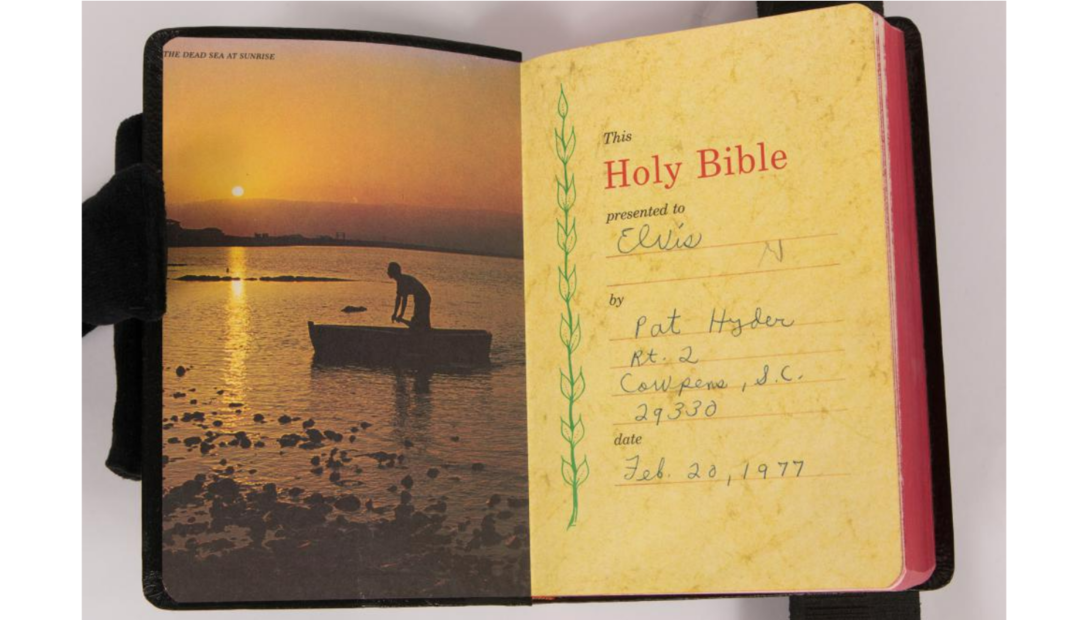 THE DEAD SEA AT SUNRISE
This
Holy Bible
presented to
Elvis
N
by
Pat Hyder
Rt. 2
Cowpens, S.C.
29330
date
Feb. 20, 1977